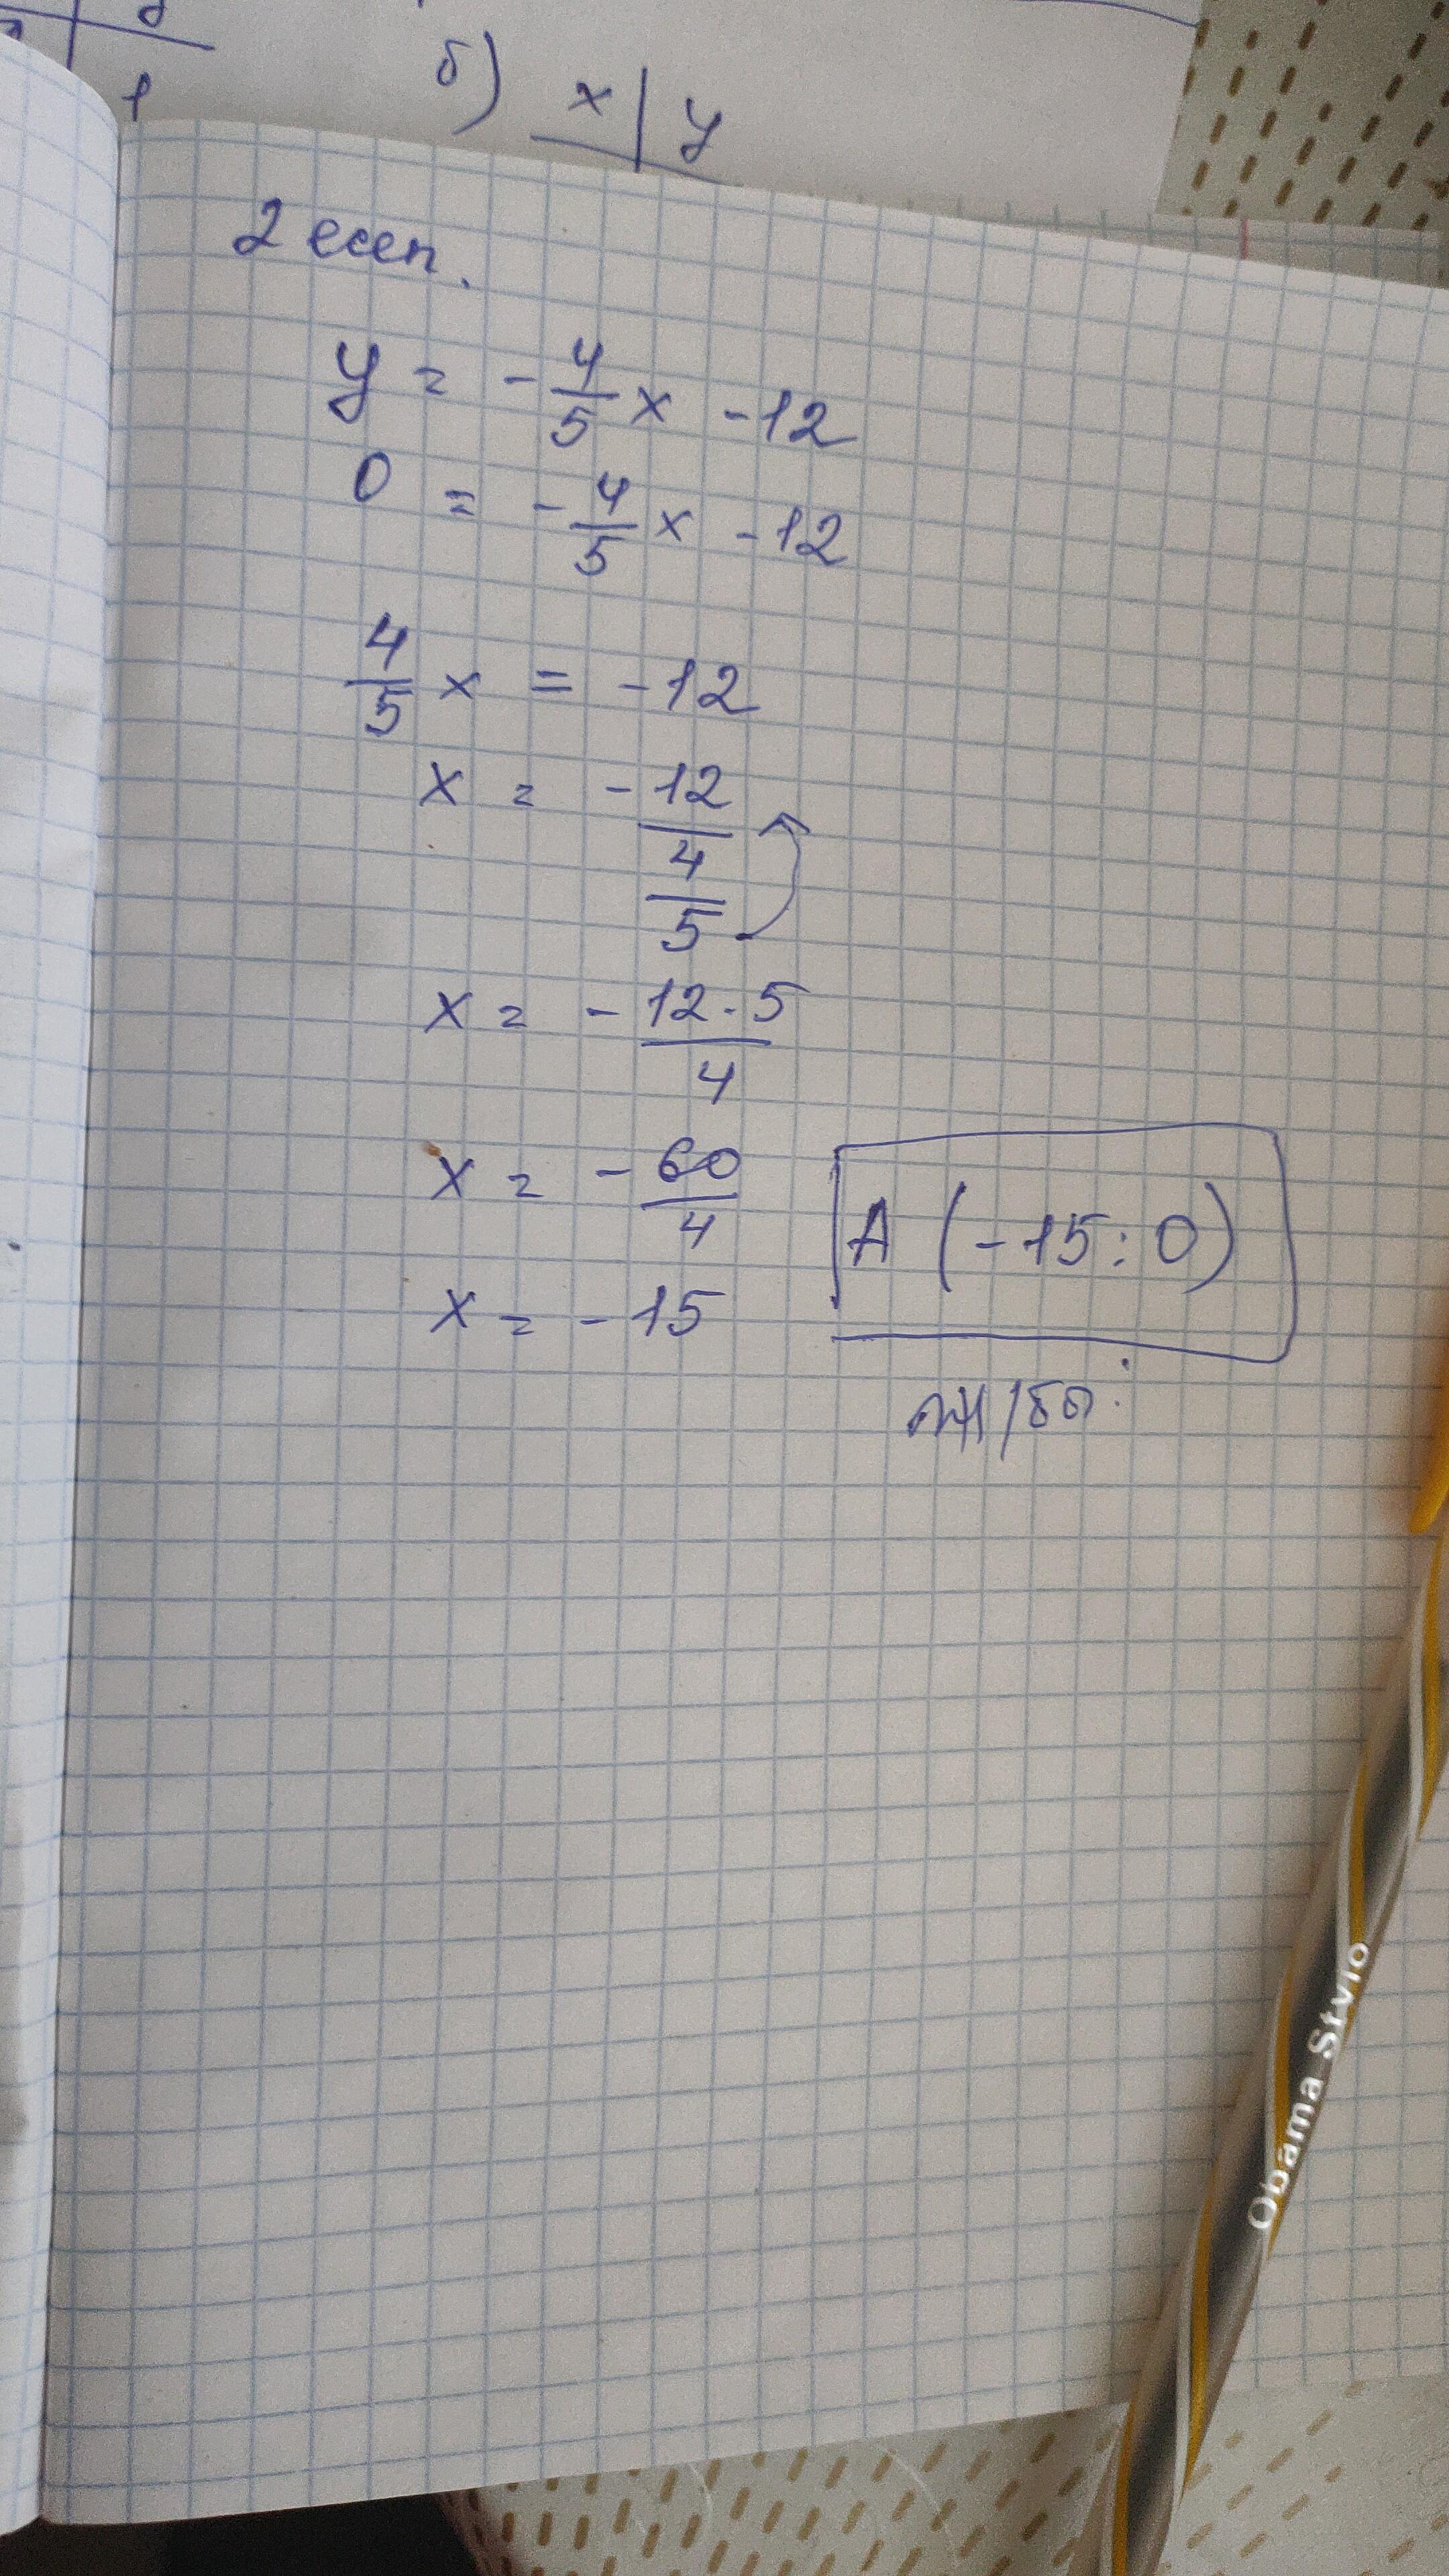 1
б) x | y
2 есеп.
y = -4/5 x -12
0 = -4/5 x -12
4/5 x = -12
x = -12/4/5
x = -12·5/4
x = -60/4
A (-15:0)
x = -15
Obama Stvlo